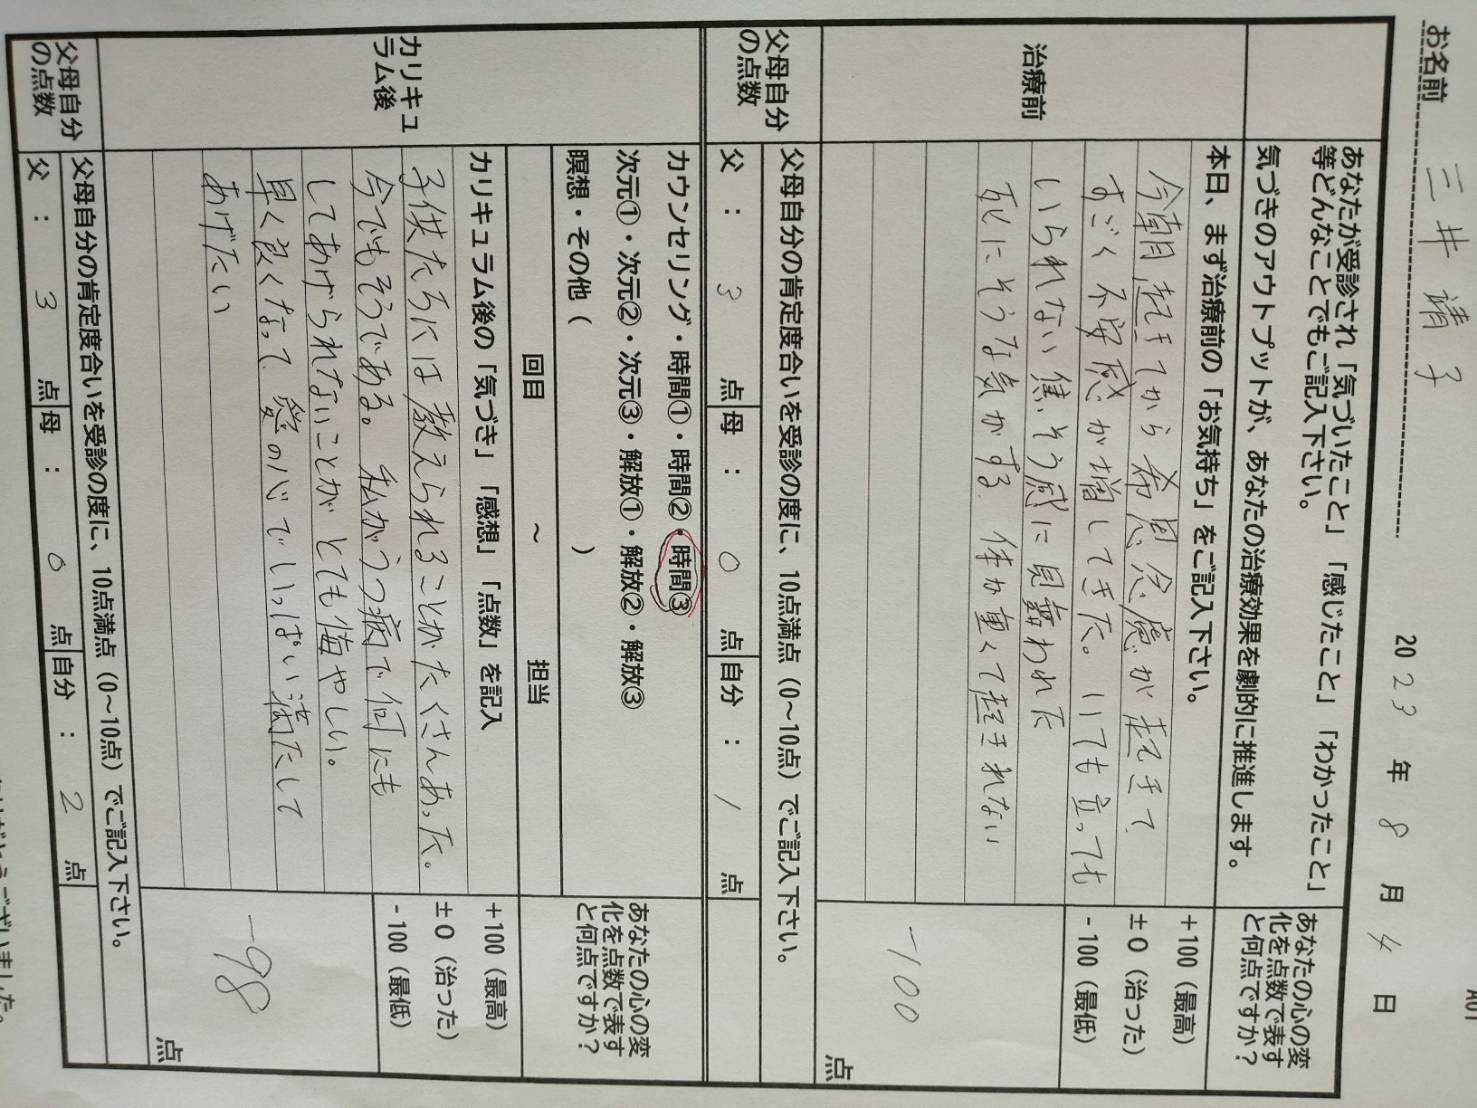 お名前 三井 請子
2023 年 8 月 4 日
あなたが受診され「気づいたこと」「感じたこと」「わかったこと」
等どんなことでもご記入下さい。
気づきのアウトプットが、あなたの治療効果を劇的に推進します。
あなたの心の変
化を点数で表す
と何点ですか?
治療前
本日、まず治療前の「お気持ち」をご記入下さい。
今朝起きてから希死念慮が起きて
すごく不安感が増してきた。いても立っても
いられない焦そう感に見舞われた
死にそうな気がする 体が重くて起きれない
+100(最高)
±0(治った)
-100(最低)
-100
点
父母自分
の点数
父母自分の肯定度合いを受診の度に、10点満点(0~10点)でご記入下さい。
父 : 3 点 母 : 0 点 自分 : 1 点
カリキュ
ラム後
カウンセリング・時間①・時間②・時間③
次元①・次元②・次元③・解放①・解放②・解放③
瞑想・その他( )
回目 ~ 担当
あなたの心の変
化を点数で表す
と何点ですか?
カリキュラム後の「気づき」「感想」「点数」を記入
子供たちには教えられることがたくさんあった。
今でもそうである。私がうつ病で何にも
してあげられないことがとても悔やしい。
早く良くなって、愛の心でいっぱい満たして
あげたい
+100(最高)
±0(治った)
-100(最低)
-98
点
父母自分
の点数
父母自分の肯定度合いを受診の度に、10点満点(0~10点)でご記入下さい。
父 : 3 点 母 : 0 点 自分 : 2 点